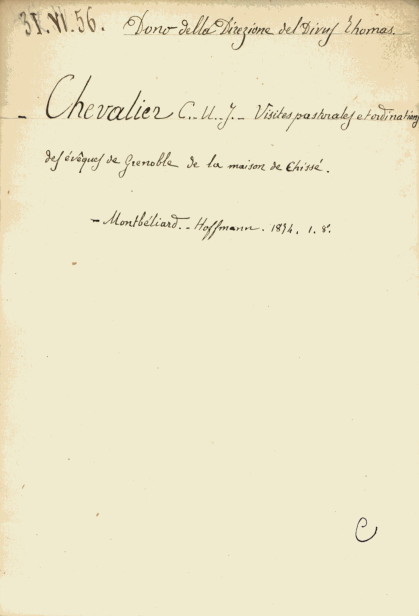 31.VI.56. Dono della Direzione del Divus Thomas.
- Chevalier C. U. J. - Visites pastorales et ordinations
des évêques de Grenoble de la maison de Chissé.
- Montbéliard. - Hoffmann. 1874. 1. 8°.
C